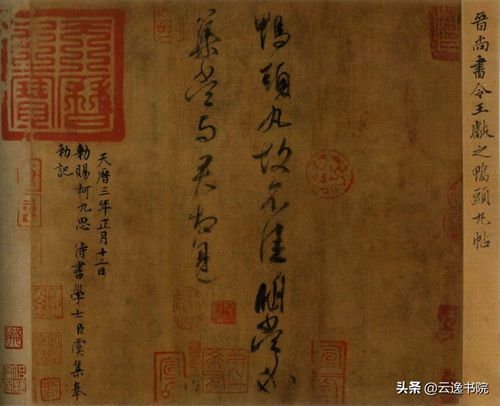 晋尚書令王獻之鴨頭丸帖
鴨頭丸故不佳明當必
集當與君相見
天曆三年正月十二日
勑賜柯九思侍書學士臣虞集奉
勑記
天曆之寶
头条 @云逸书院